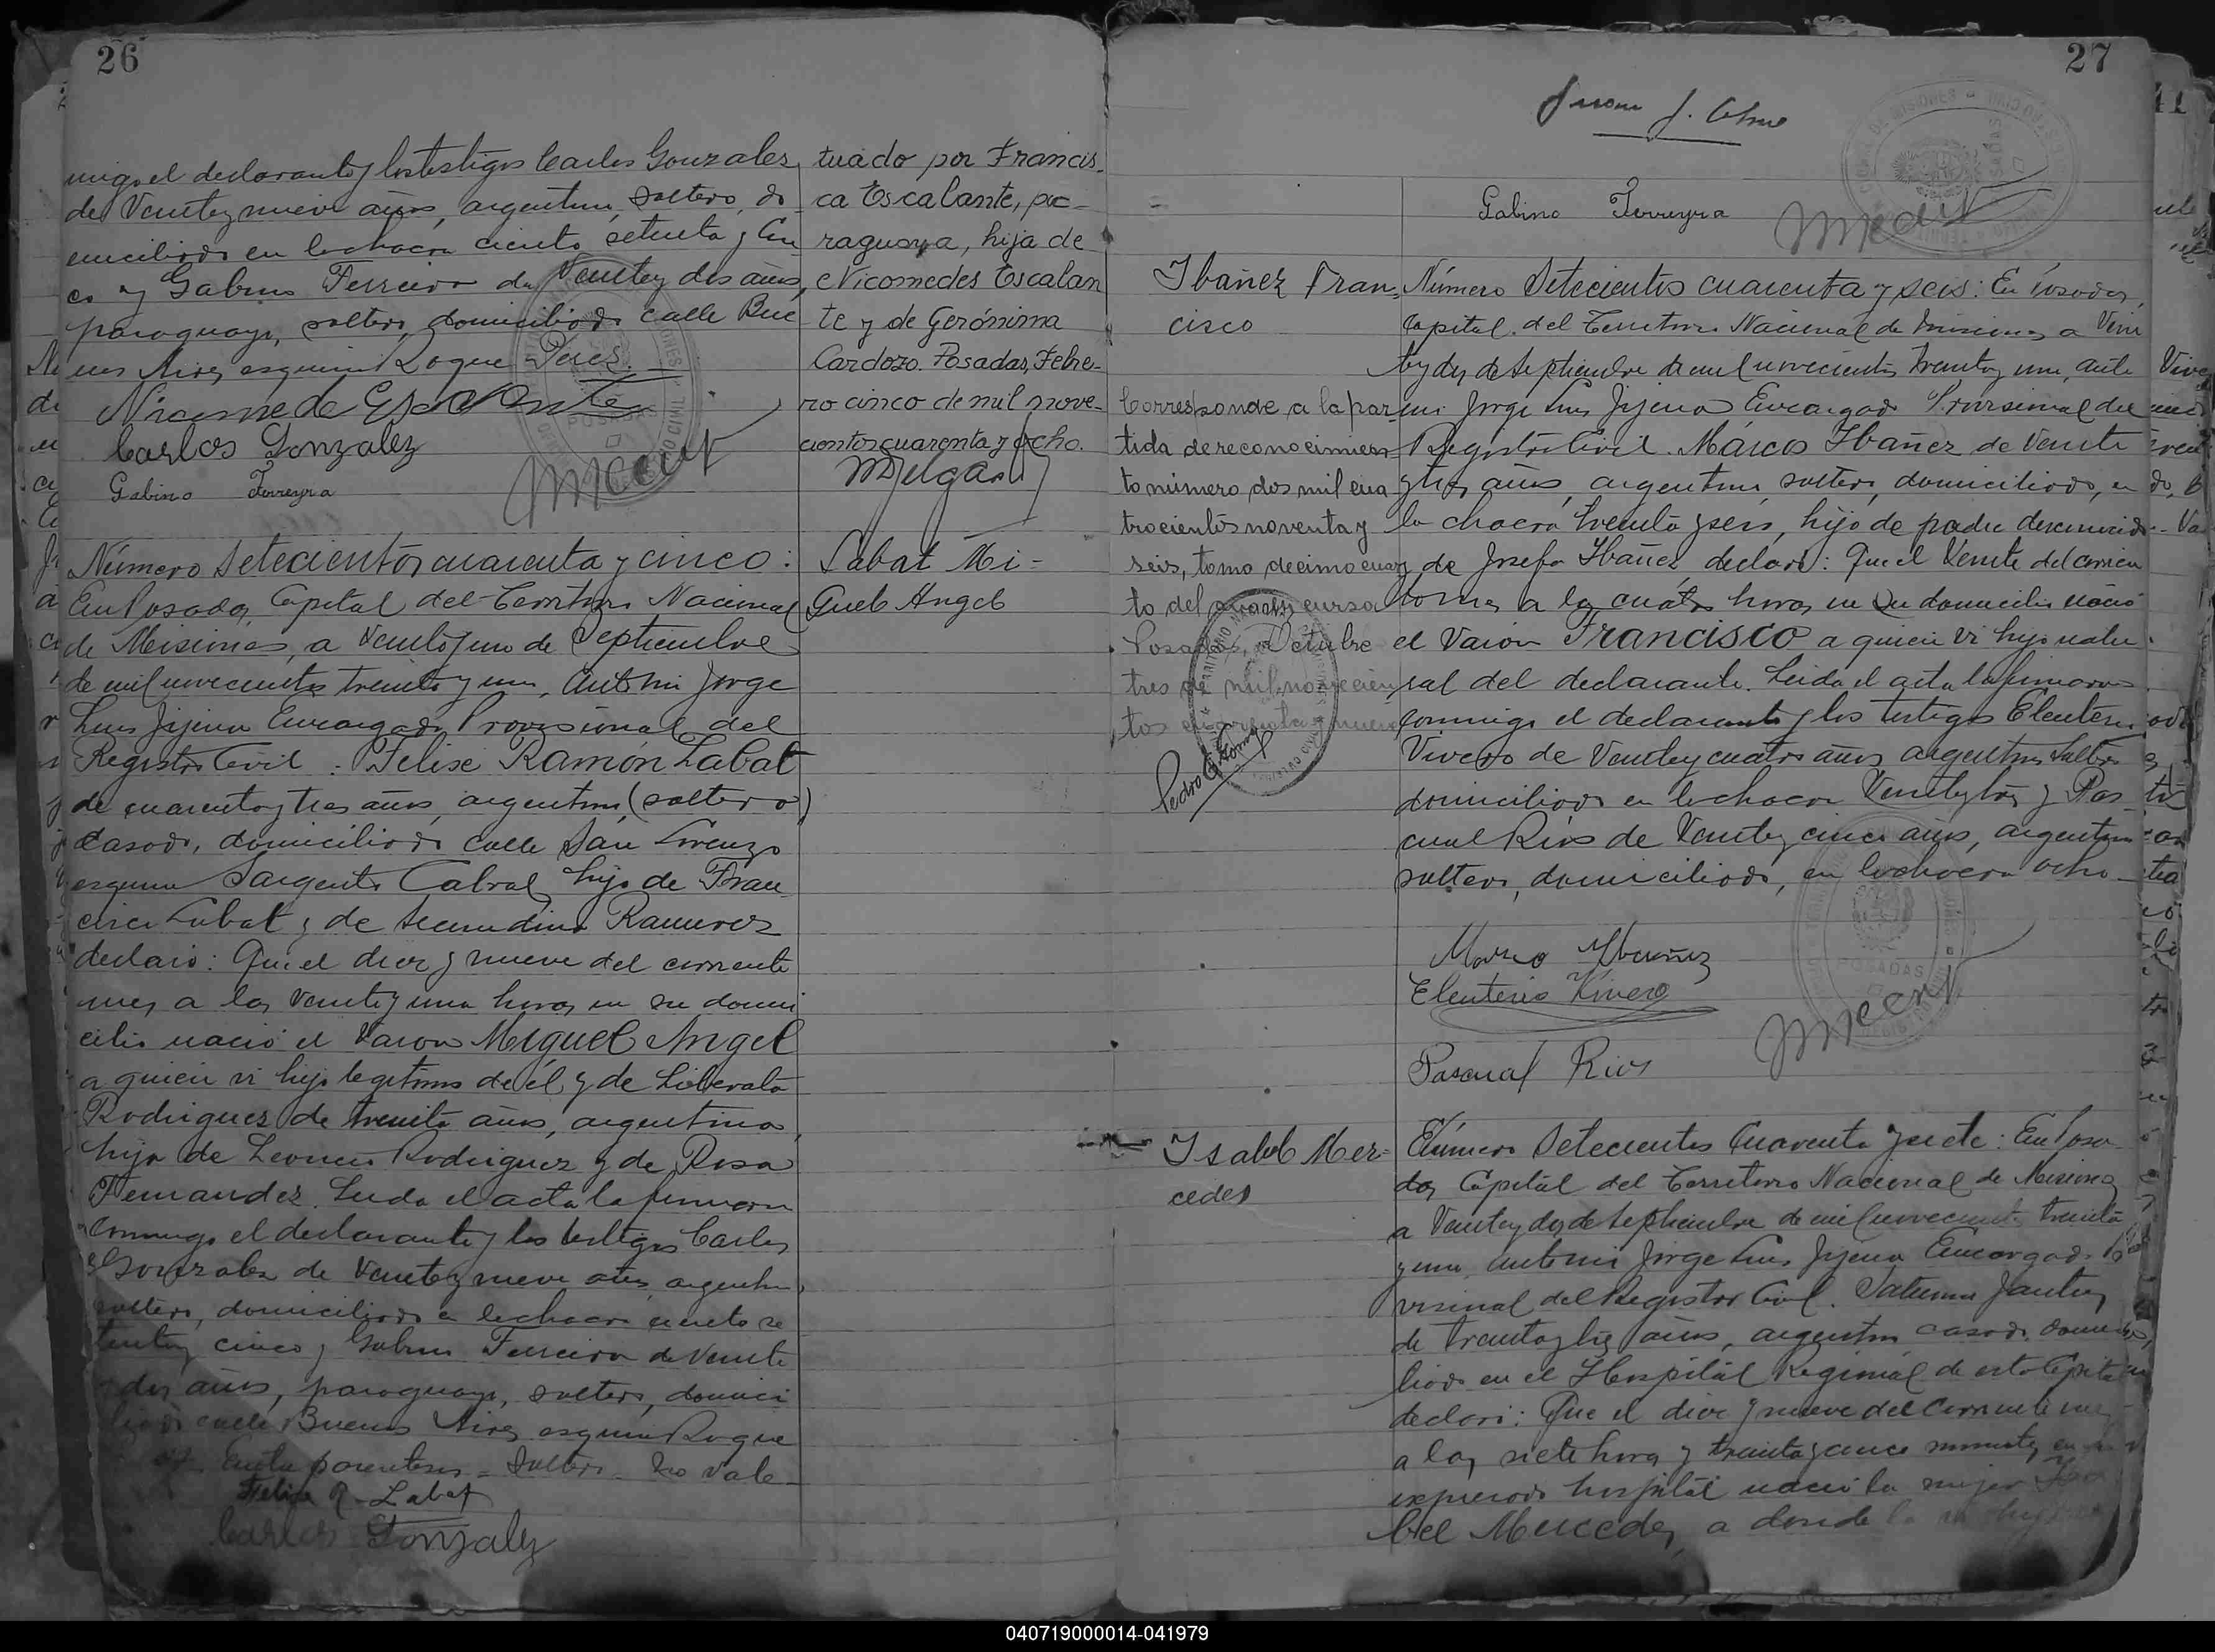 26
migo el declarante y los testigos Carlos Gonzales
de Veinte y nueve años, argentino, soltero, do
miciliado en la chacra ciento setenta y cin
co y Gabino Ferreira de Veinte y dos años,
paraguayo, soltero, domiciliado calle Bue
nos Aires esquina Roque Perez.
Nicomede Escalante
Carlos Gonzalez
Gabino Ferreyra
tuado por Francis-
ca Escalante, pa-
raguaya, hija de
Nicomedes Escalan
te y de Gerónima
Cardozo. Posadas, Febre-
ro cinco de mil nove-
cientos cuarenta y ocho.
Número Setecientos cuarenta y cinco:
En Posadas, Capital del Territorio Nacional
de Misiones, a Veinte y uno de Septiembre
de mil novecientos treinta y uno, ante mi Jorge
Luis Jijena Encargado Provisional del
Registro Civil. Felise Ramón Labat
de cuarenta y tres años, argentino (soltero)
casado, domiciliado calle San Lorenzo
esquina Sargento Cabral, hijo de Fran
cisco Labat y de Secundina Ramirez
declaró: Que el diez y nueve del corriente
mes a las Veinte y una horas en su domi
cilio nació el Varon Miguel Angel
a quien vi hijo legitimo de él y de Liberata
Rodriguez de treinta años, argentina,
hija de Leoncio Rodriguez y de Rosa
Fernandez. Leida el acta la firmaron
conmigo el declarante y los testigos Carlos
Gonzalez de Veinte y nueve años, argentino,
soltero, domiciliado en la chacra ciento se
tenta y cinco y Gabino Ferreira de Veinte
y dos años, paraguayo, soltero, domici
liado calle Buenos Aires esquina Roque
Entre parentesis = Soltero = No vale =
Felise R. Labat
Carlos Gonzalez
Labat Mi=
guel Angel
27
Gabino Ferreyra
Ibañez Fran=
cisco
Corresponde a la par
tida de reconocimien=
to número dos mil cua
trocientos noventa y
seis, tomo decimo cuar
to del año en curso
Posadas, Octubre
tres de mil novecien
tos cuarenta y nueve
Número Setecientos cuarenta y seis: En Posadas,
Capital del Territorio Nacional de Misiones a Vein
te y dos de Septiembre de mil novecientos treinta y uno, ante
mi Jorge Luis Jijena Encargado Provisional del
Registro Civil. Márcos Ibañez de Veinte
y tres años, argentino, soltero, domiciliado, en
la chacra treinta y seis, hijo de padre desconocido
y de Josefa Ibañez declaró: Que el Veinte del corrien
te mes a las cuatro horas en su domicilio nació
el Varon Francisco a quien vi hijo natu
ral del declarante. Leida el acta la firmaron
conmigo el declarante y los testigos Eleuterio
Vivero de Veinte y cuatro años argentino soltero
domiciliado en la chacra Veinte y tres y Pas
cual Rios de Veinte y cinco años, argentino
soltero, domiciliado, en la chacra ocho
Marco Ybañez
Eleuterio Vivero
Pascual Rios
Isabel Mer=
cedes
Número Setecientos Cuarenta y siete: En Posa
das Capital del Territorio Nacional de Misiones
a Veinte y dos de Septiembre de mil novecientos treinta
y uno, ante mi Jorge Luis Jijena Encargado Pro
visional del Registro Civil.
de treinta y tres años, argentino casado domici
liado en el Hospital Regional de esta Capital
declaró: Que el diez y nueve del corriente mes
a las siete horas y treinta y cinco minutos en
expresado hospital nació la mujer Isa
bel Mercedes, a donde la vi hija
040719000014-041979